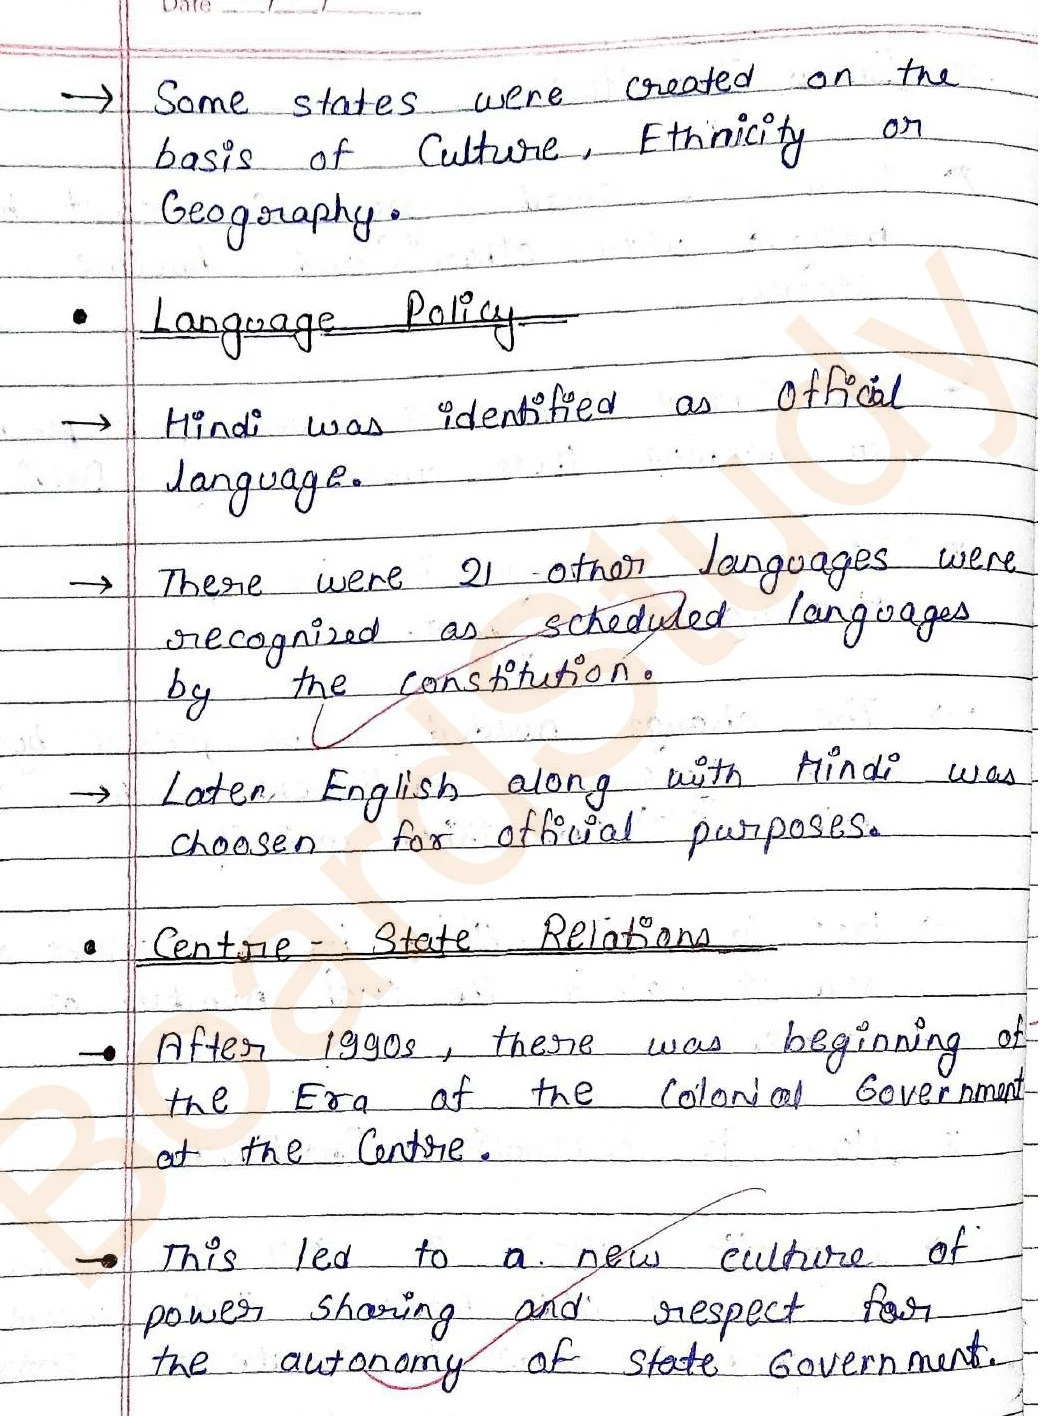 Date / /
→ Some states were created on the
basis of Culture, Ethnicity or
Geography.
• Language Policy
→ Hindi was identified as Offical
language.
→ There were 21 other languages were
recognized as scheduled languages
by the constitution.
→ Later English along with Hindi was
choosen for official purposes.
• Centre - State Relations
→ After 1990s, there was beginning of
the Era of the Colonial Government
at the Centre.
→ This led to a new culture of
power sharing and respect for
the autonomy of State Government.
BoardStudy